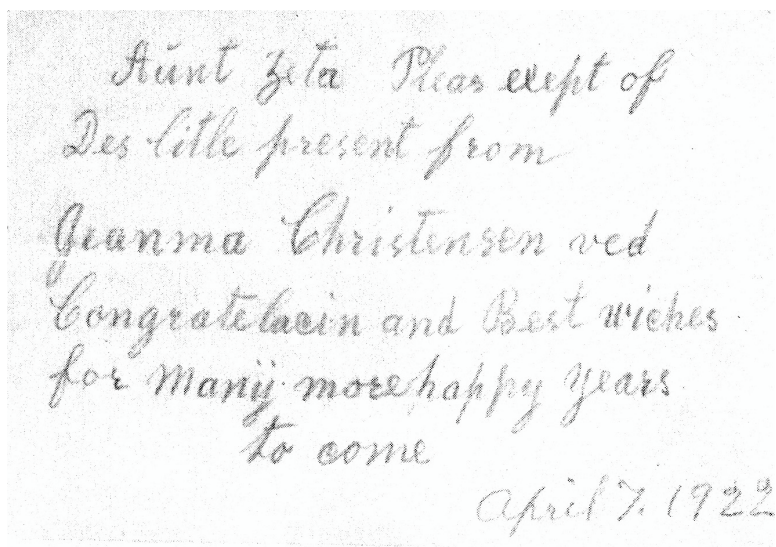 Aunt Zeta Pleas exept of
Des litle present from
Granma Christensen ved
Congratelacin and Best wiches
for Manÿ more happy years
to come
April 7. 1922